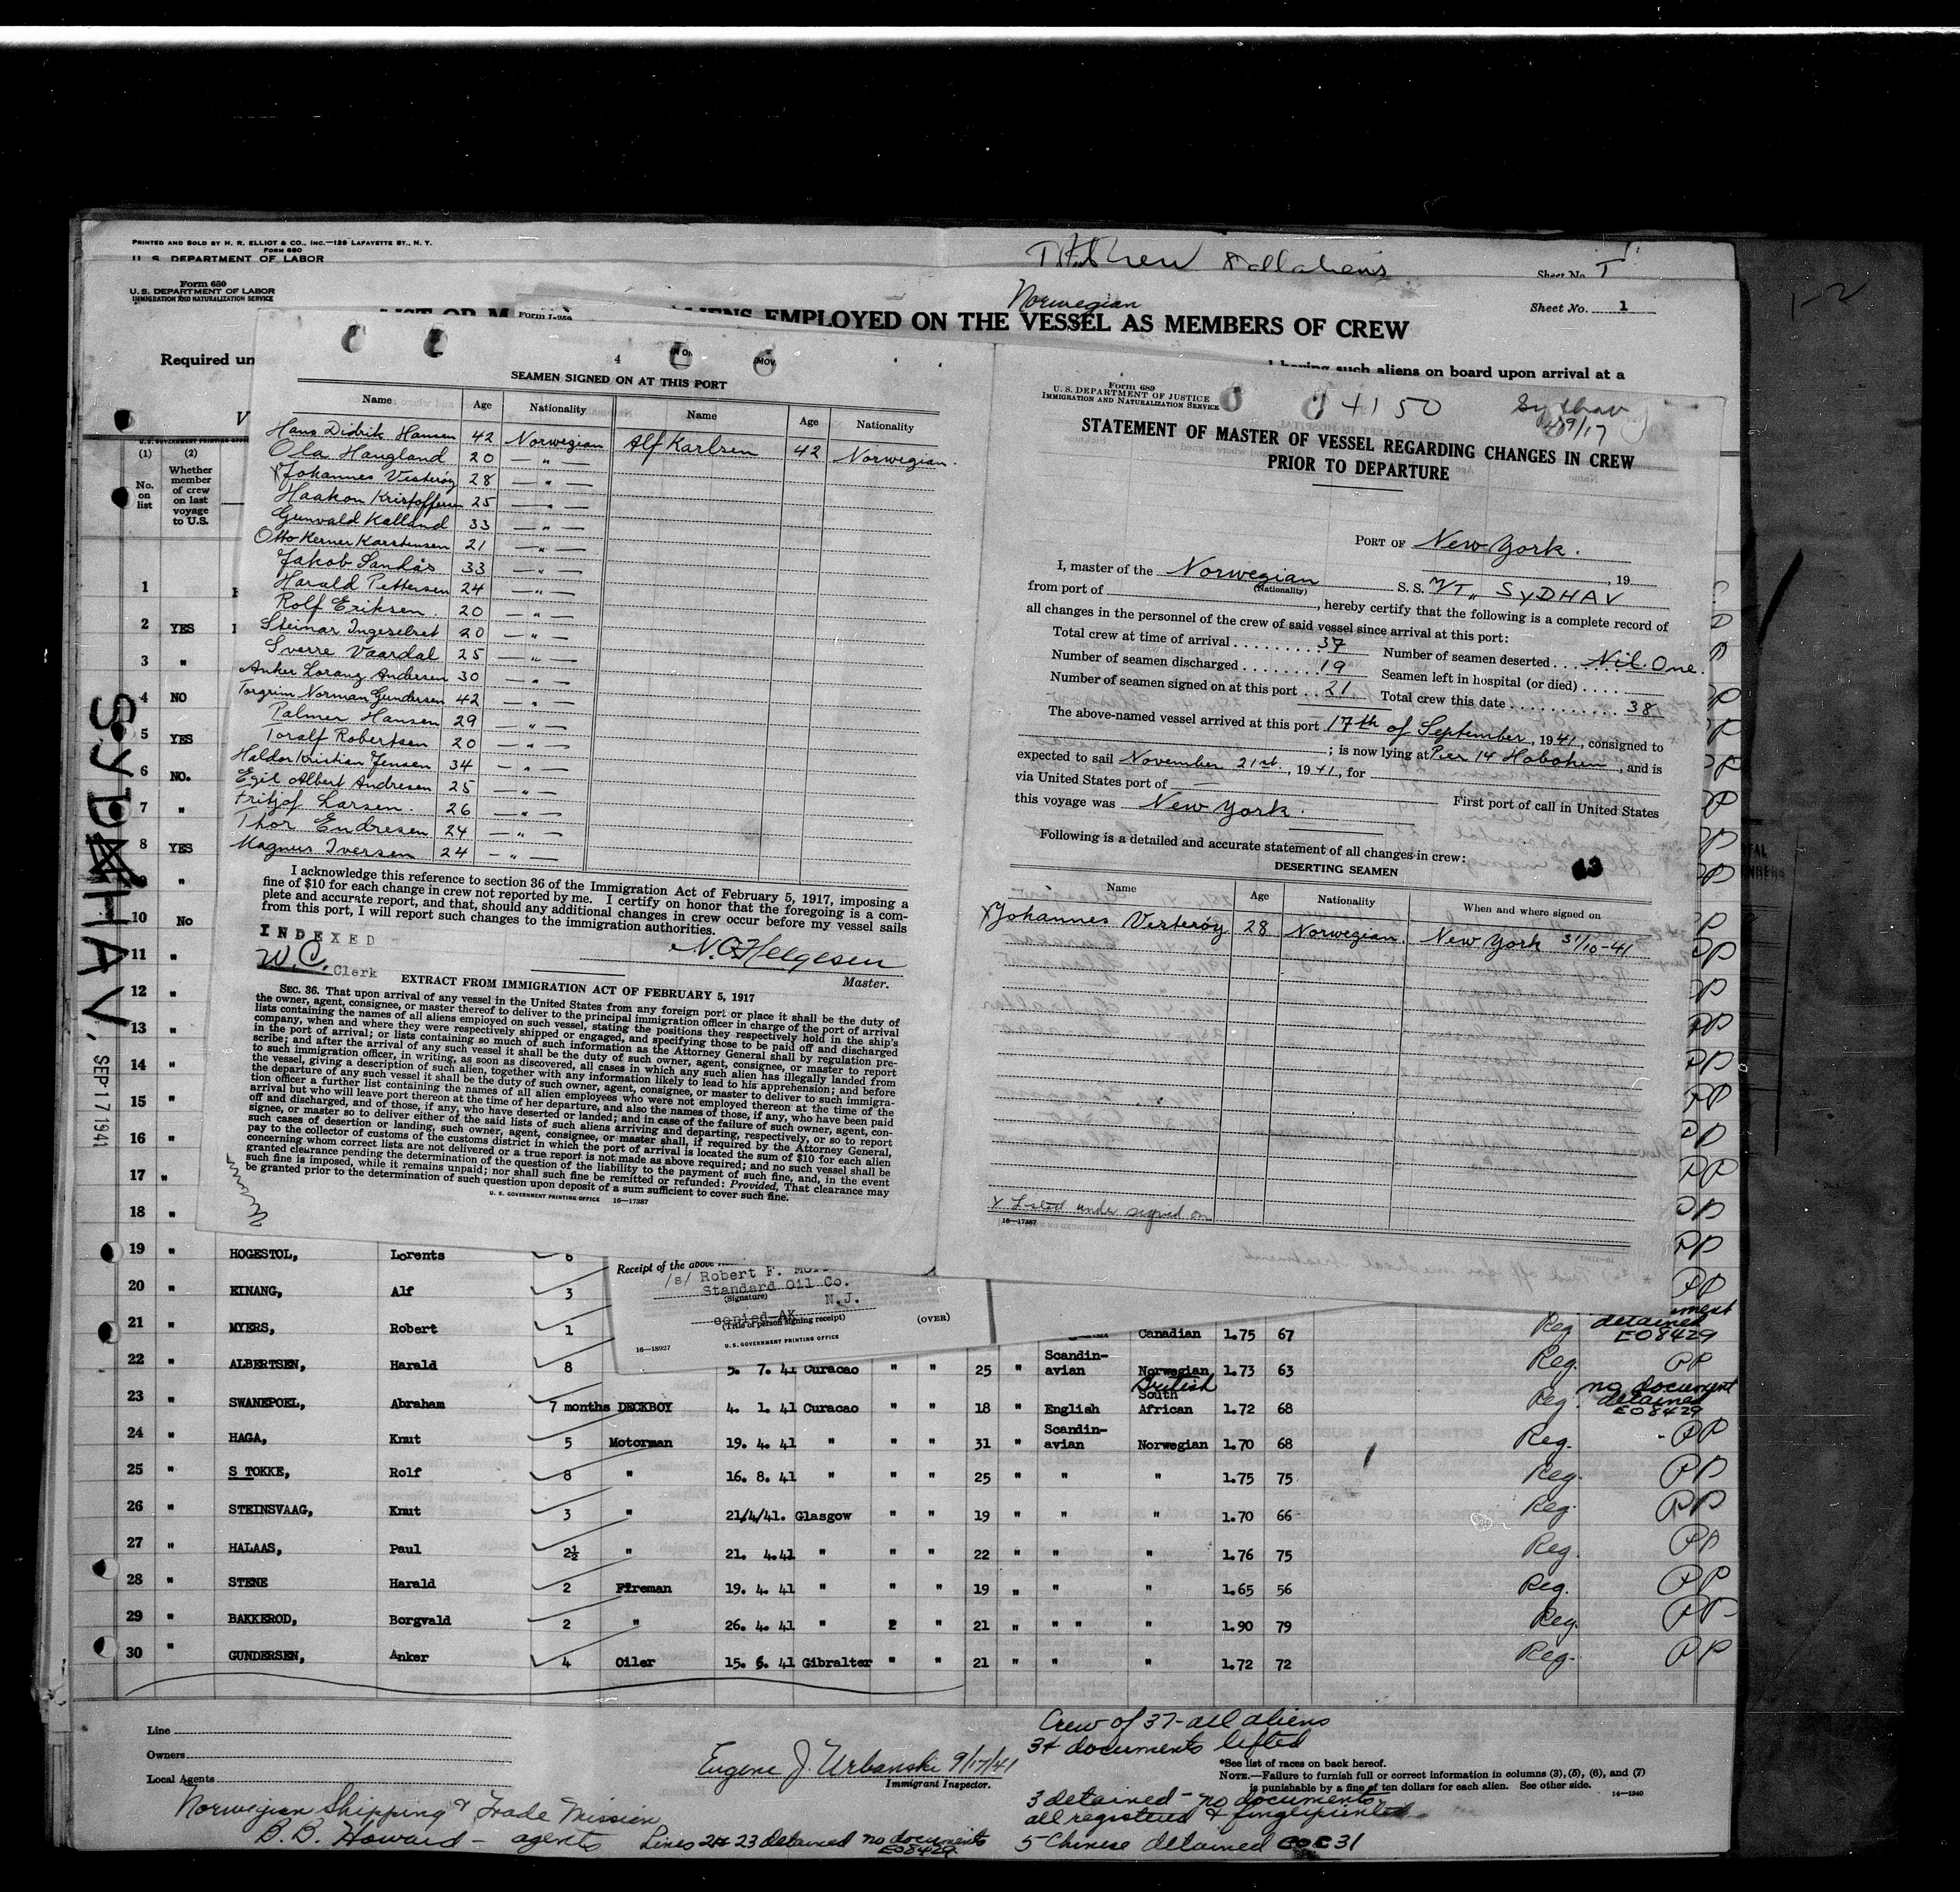 PRINTED AND SOLD BY H. R. ELLIOT & CO., INC.—129 LAFAYETTE ST., N. Y.
FORM 680
U. S. DEPARTMENT OF LABOR
Sheet No.
Form 680
U. S. DEPARTMENT OF LABOR
IMMIGRATION AND NATURALIZATION SERVICE
Norwegian
Sheet No. 1
ALIENS EMPLOYED ON THE VESSEL AS MEMBERS OF CREW
Form I-259
Required un
having such aliens on board upon arrival at a
U. S. GOVERNMENT PRINTING OFF
(1) (2)
No. on list
Whether member of crew on last voyage to U.S.
1
2 YES
3 "
4 NO
5 YES
6 NO.
7 "
8 YES
9 "
10 No
11 "
12 "
13 "
14 "
15 "
16 "
17 "
18 "
SYDHAV.
SEP 17 1941
4
SEAMEN SIGNED ON AT THIS PORT
Name Age Nationality Name Age Nationality
Hans Didrik Hansen 42 Norwegian Alf Karlsen 42 Norwegian.
Ola Haugland 20 — " —
x Johannes Vesterøy 28 — " —
Haakon Kristoffersen 25 — " —
Gunvald Kalland 33 — " —
Otto Kerner Karstensen 21 — " —
Jakob Sandås 33 — " —
Harald Pettersen 24 — " —
Rolf Eriksen. 20 — " —
Steinar Ingeselret 20 — " —
Sverre Vaardal 25 — " —
Anker Lorang Andersen 30 — " —
Torgrim Norman Gundersen 42 — " —
Palmer Hansen 29 — " —
Toralf Robertsen 20 — " —
Haldor Kristian Jensen 34 — " —
Egil Albert Andresen 25 — " —
Fritjof Larsen. 26 — " —
Thor Endresen 24 — " —
Magnus Iversen 24 — " —
I acknowledge this reference to section 36 of the Immigration Act of February 5, 1917, imposing a
fine of $10 for each change in crew not reported by me. I certify on honor that the foregoing is a com-
plete and accurate report, and that, should any additional changes in crew occur before my vessel sails
from this port, I will report such changes to the immigration authorities.
INDEXED
W.C. Clerk
N. C. Helgesen
Master.
EXTRACT FROM IMMIGRATION ACT OF FEBRUARY 5, 1917
SEC. 36. That upon arrival of any vessel in the United States from any foreign port or place it shall be the duty of
the owner, agent, consignee, or master thereof to deliver to the principal immigration officer in charge of the port of arrival
lists containing the names of all aliens employed on such vessel, stating the positions they respectively hold in the ship's
company, when and where they were respectively shipped or engaged, and specifying those to be paid off and discharged
in the port of arrival; or lists containing so much of such information as the Attorney General shall by regulation pre-
scribe; and after the arrival of any such vessel it shall be the duty of such owner, agent, consignee, or master to report
to such immigration officer, in writing, as soon as discovered, all cases in which any such alien has illegally landed from
the vessel, giving a description of such alien, together with any information likely to lead to his apprehension; and before
the departure of any such vessel it shall be the duty of such owner, agent, consignee, or master to deliver to such immigra-
tion officer a further list containing the names of all alien employees who were not employed thereon at the time of the
arrival but who will leave port thereon at the time of her departure, and also the names of those, if any, who have been paid
off and discharged, and of those, if any, who have deserted or landed; and in case of the failure of such owner, agent, con-
signee, or master so to deliver either of the said lists of such aliens arriving and departing, respectively, or so to report
such cases of desertion or landing, such owner, agent, consignee, or master shall, if required by the Attorney General,
pay to the collector of customs of the customs district in which the port of arrival is located the sum of $10 for each alien
concerning whom correct lists are not delivered or a true report is not made as above required; and no such vessel shall be
granted clearance pending the determination of the question of the liability to the payment of such fine, and, in the event
such fine is imposed, while it remains unpaid; nor shall such fine be remitted or refunded: Provided, That clearance may
be granted prior to the determination of such question upon deposit of a sum sufficient to cover such fine.
U. S. GOVERNMENT PRINTING OFFICE 16—17387
Form 689
U. S. DEPARTMENT OF JUSTICE
IMMIGRATION AND NATURALIZATION SERVICE
4150
Sydhav
9/17
STATEMENT OF MASTER OF VESSEL REGARDING CHANGES IN CREW
PRIOR TO DEPARTURE
PORT OF New York.
, 19
I, master of the Norwegian S. S. M/T. „ SYDHAV
(Nationality)
from port of , hereby certify that the following is a complete record of
all changes in the personnel of the crew of said vessel since arrival at this port:
Total crew at time of arrival 37 Number of seamen deserted Nil. One.
Number of seamen discharged 19 Seamen left in hospital (or died)
Number of seamen signed on at this port 21 Total crew this date 38
The above-named vessel arrived at this port 17th of September, 1941, consigned to
; is now lying at Pier 14 Hoboken, and is
expected to sail November 21st, 1941, for
via United States port of —
First port of call in United States
this voyage was New York.
Following is a detailed and accurate statement of all changes in crew:
DESERTING SEAMEN
13
Name Age Nationality When and where signed on
x Johannes Vesterøy 28 Norwegian. New York 31/10-41
x Listed under signed on
16—17387
19 " HOGESTOL, Lorents 6
20 " EINANG, Alf 3
21 " MYERS, Robert 1 Canadian 1.75 67 Reg. detained E08429
22 " ALBERTSEN, Harald 8 5. 7. 41 Curacao " " 25 " Scandin-avian Norwegian 1.73 63 Reg. PP
23 " SWANEPOEL, Abraham 7 months DECKBOY 4. 1. 41 Curacao " " 18 " English British South African 1.72 68 Reg. no document detained E08429
24 " HAGA, Knut 5 Motorman 19. 4. 41 " " " 31 " Scandin-avian Norwegian 1.70 68 Reg. PP
25 " S TOKKE, Rolf 8 " 16. 8. 41 " " " 25 " " " 1.75 75 Reg. PP
26 " STEINSVAAG, Knut 3 " 21/4/41. Glasgow " " 19 " " " 1.70 66 Reg. PP
27 " HALAAS, Paul 2½ " 21. 4.41 " " " 22 " " " 1.76 75 Reg. PP
28 " STENE Harald 2 Fireman 19. 4. 41 " " " 19 " " " 1.65 56 Reg. PP
29 " BAKKEROD, Borgvald 2 " 26. 4. 41 " " 21 " " " " 1.90 79 Reg. PP
30 " GUNDERSEN, Anker 4 Oiler 15. 6. 41 Gibralter " " 21 " " " 1.72 72 Reg. PP
Receipt of the above
/s/ Robert F.
Standard Oil Co.
(Signature) N.J.
copied-AK
(Title of person signing receipt) (OVER)
16—18927 U. S. GOVERNMENT PRINTING OFFICE
Line
Owners
Local Agents
Norwegian Shipping & Trade Mission
B. B. Howard – agents
Eugene J. Urbanski 9/17/41
Immigrant Inspector.
Lines 21 23 detained no documents
E08429
Crew of 37-all aliens
34 documents lifted
*See list of races on back hereof.
NOTE.—Failure to furnish full or correct information in columns (3), (5), (6), and (7)
is punishable by a fine of ten dollars for each alien. See other side.
14—1240
3 detained – no documents
all registered & fingerprinted
5 Chinese detained COC 31